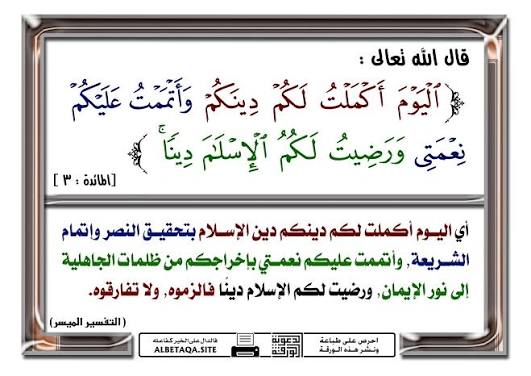 قال الله تعالى :
﴿ ٱلۡيَوۡمَ أَكۡمَلۡتُ لَكُمۡ دِينَكُمۡ وَأَتۡمَمۡتُ عَلَيۡكُمۡ
نِعۡمَتِي وَرَضِيتُ لَكُمُ ٱلۡإِسۡلَٰمَ دِينٗاۚ ﴾
[المائدة : ٣ ]
أي اليـوم أكملت لكم دينكم دين الإسـلام بتحقيـق النصر وإتمام
الشـريعة، وأتممت عليكم نعمتـي بإخراجكم من ظلمات الجاهلية
إلى نور الإيمان، ورضيت لكم الإسلام دينًا فالزموه، ولا تفارقوه.
(التفسير الميسر)
احرص على طباعة
ونشر هذه الورقة
الدعوية
الورقة
فالدال على الخير كفاعله
ALBETAQA.SITE